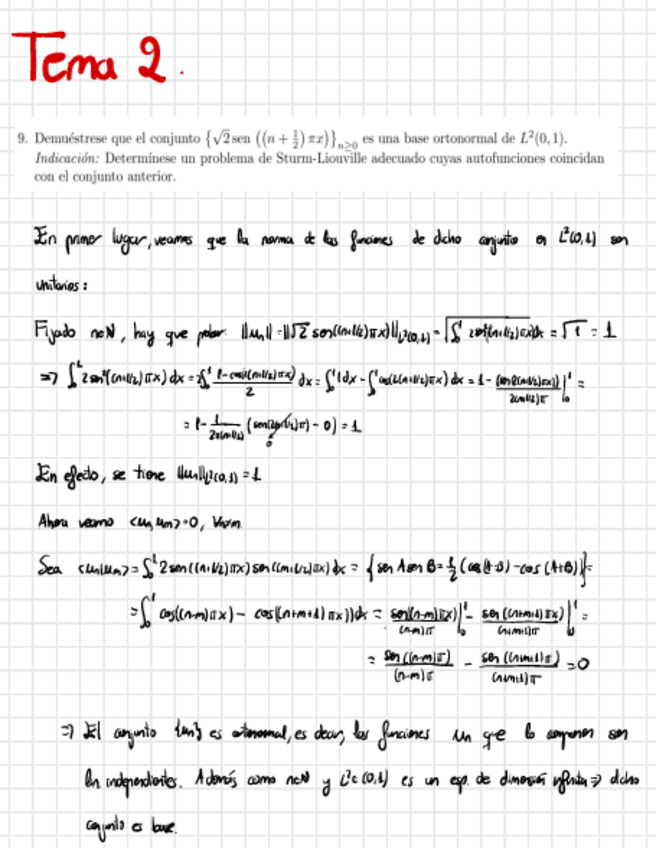 Tema 2.
9. Demuéstrese que el conjunto {√2 sen ((n + 1/2) πx)}n≥0 es una base ortonormal de L²(0, 1).
Indicación: Determínese un problema de Sturm-Liouville adecuado cuyas autofunciones coincidan
con el conjunto anterior.
En primer lugar, veamos que la norma de las funciones de dicho conjunto en L²(0,1) son
unitarias:
Fijado n∈N, hay que probar: ||un|| = ||√2 sen((n+1/2)πx)||L²(0,1) = √∫₀¹ 2sen²((n+1/2)πx)dx = √1 = 1
=> ∫₀¹ 2 sen²((n+1/2)πx) dx = 2∫₀¹ (1-cos(2(n+1/2)πx))/2 dx = ∫₀¹ 1dx - ∫₀¹ cos(2(n+1/2)πx) dx = 1 - (sen(2(n+1/2)πx))/(2(n+1/2)π) |₀¹ =
= 1 - 1/(2π(n+1/2)) (sen(2(n+1/2)π) - 0) = 1
0
En efecto, se tiene ||un||L²(0,1) = 1
Ahora veamos <un, um> = 0, ∀n≠m
Sea <un,um> = ∫₀¹ 2 sen((n+1/2)πx) sen((m+1/2)πx) dx = {sen A sen B = 1/2 (cos(A-B) - cos(A+B))} =
= ∫₀¹ cos((n-m)πx) - cos((n+m+1)πx) dx = sen((n-m)πx)/((n-m)π) |₀¹ - sen((n+m+1)πx)/((n+m+1)π) |₀¹ =
= sen((n-m)π)/((n-m)π) - sen((n+m+1)π)/((n+m+1)π) = 0
=> El conjunto {un} es ortonormal, es decir, las funciones un que lo componen son
lin independientes. Además como n∈N y L²(0,1) es un esp. de dimensión infinita => dicho
conjunto es base.